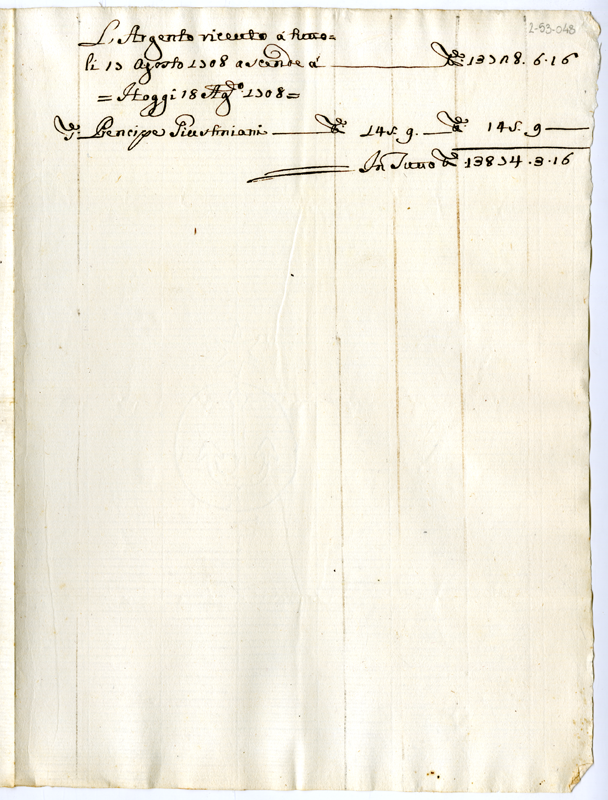 2-53-048
L'Argento riceuto à tutto=
li 17 Agosto 1708 ascende á lb 13728.6.16
= Hoggi 18 Ag.o 1708 =
Prencipe Giustiniani lb 145.9. lb 145.9
In Tutto lb 13874.3.16